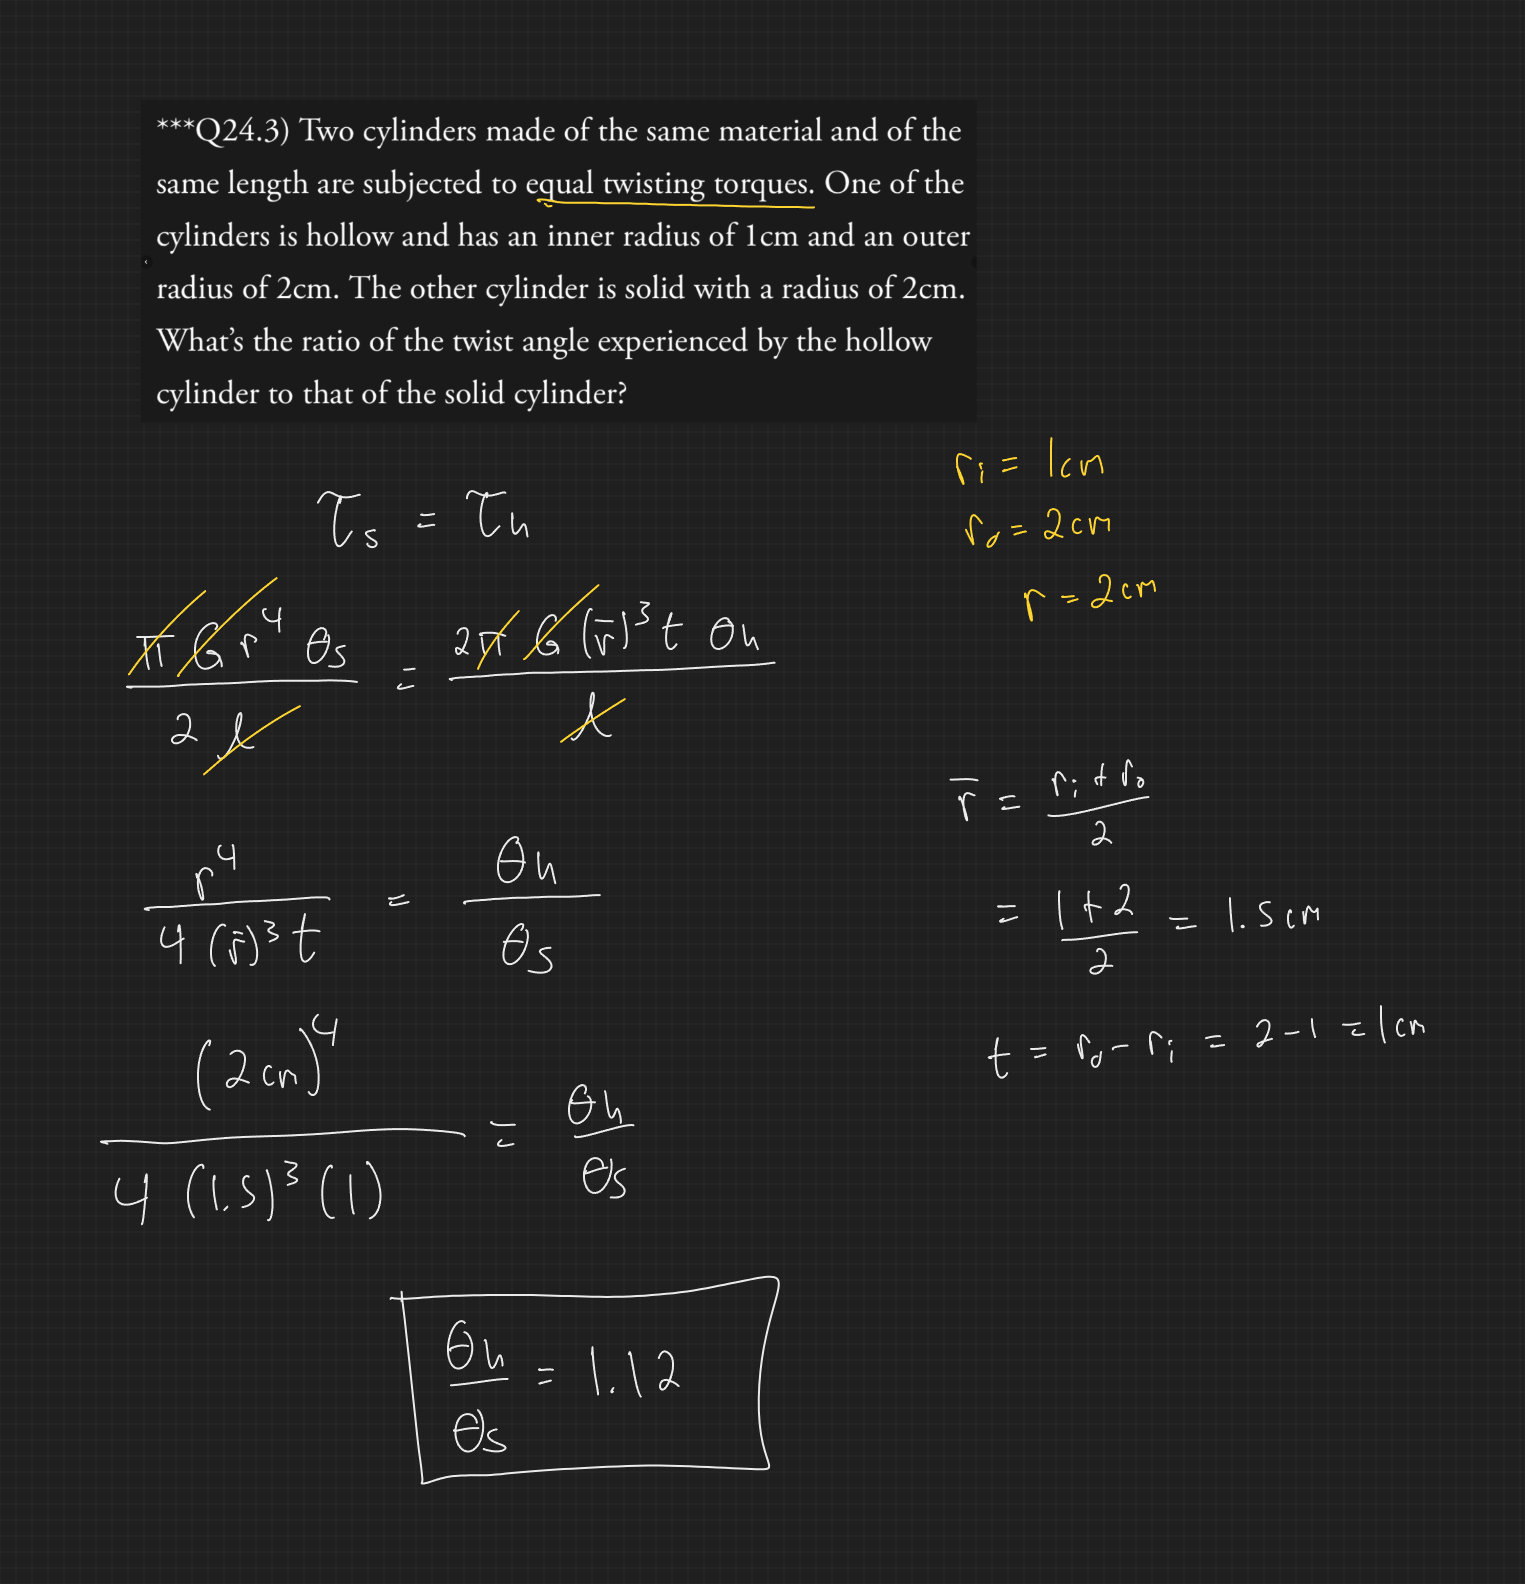 ***Q24.3) Two cylinders made of the same material and of the
same length are subjected to equal twisting torques. One of the
cylinders is hollow and has an inner radius of 1cm and an outer
radius of 2cm. The other cylinder is solid with a radius of 2cm.
What's the ratio of the twist angle experienced by the hollow
cylinder to that of the solid cylinder?
rᵢ = 1cm
τₛ = τₕ
r₀ = 2cm
r = 2cm
π G r⁴ θₛ / 2 l = 2π G (r̄)³ t θₕ / l
r̄ = rᵢ + r₀ / 2
r⁴ / 4 (r̄)³ t = θₕ / θₛ
= 1+2 / 2 = 1.5cm
t = r₀ - rᵢ = 2-1 = 1cm
(2cm)⁴ / 4 (1.5)³ (1) = θₕ / θₛ
θₕ / θₛ = 1.12